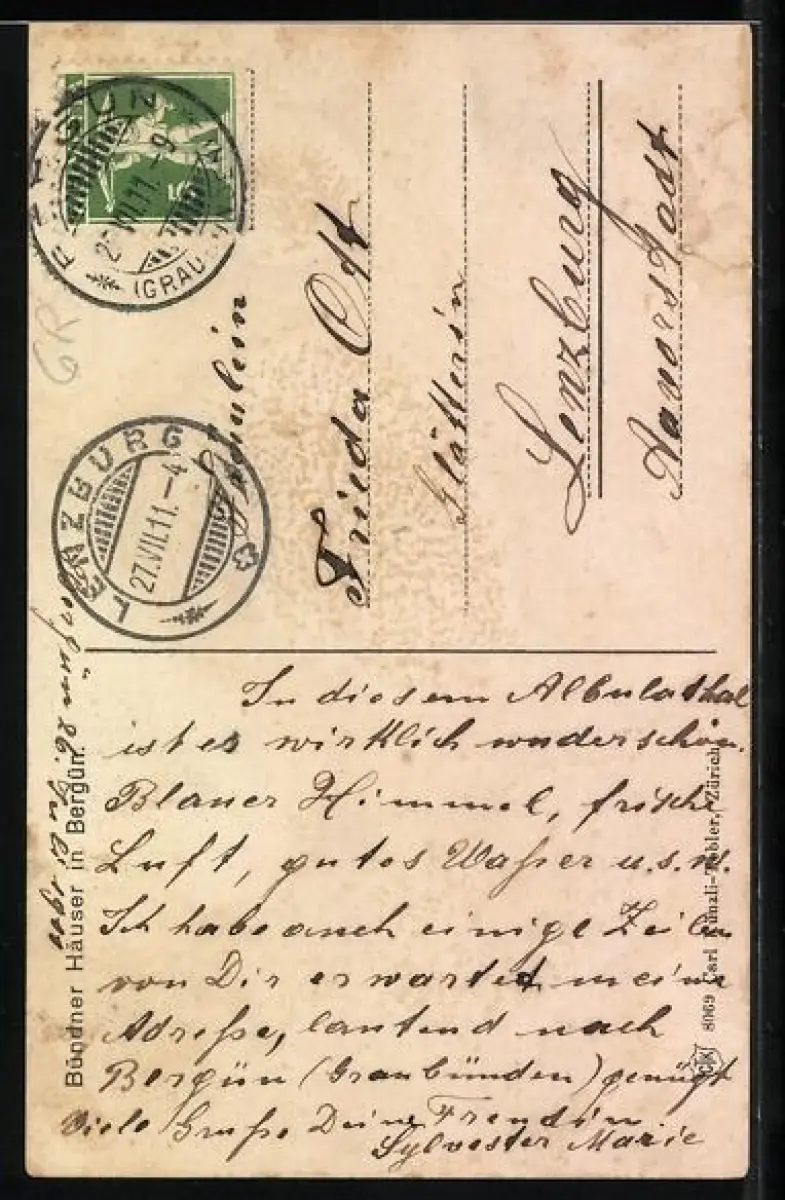 BERGÜN
(GRAU
5
LENZBURG
27.VII.11.-4
GR
Fräulein
Frieda Ott
Glätterin
Lenzburg
Bergün 26.
Bündner Häuser in Bergün.
In diesem Albulathal
ist es wirklich wunderschön.
Blauer Himmel, frische
Luft, gutes Waßer u.s.w.
Ich habe auch einige Zeilen
von Dir erwartet meine
Adreße, lautend nach
Bergün (Graubünden) genügt
Viele Grüße Deine Freundin.
Sylvester Marie
8069 Carl Künzli-Tobler, Zürich